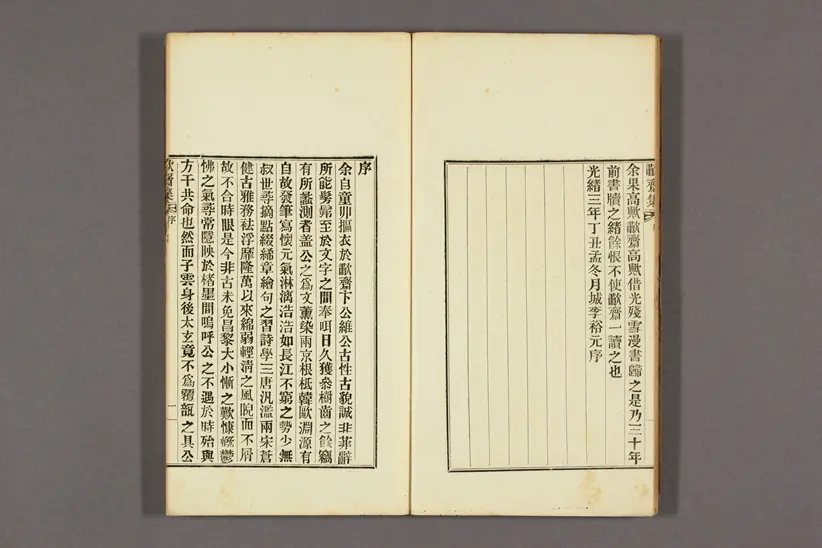 歗齋集序
余果高歟歗齋高歟借光殘雪漫書歸之是乃三十年
前書牘之緖餘恨不使歗齋一讀之也
光緖三年丁丑孟冬月城李裕元序
序
余自童丱摳衣於歗齋卞公維公古性古貌誠非菲辭
所能髣髴至於文字之間奉咡日久獲叅櫛齒之餘竊
有所蠡測者盖公之爲文薰染兩京根柢韓歐淵源有
自故發筆寫懷元氣淋漓浩浩如長江不窮之勢少無
叔世尋摘點綴絺章繪句之習詩學三唐汎濫兩宋蒼
健古雅務袪浮靡隆萬以來綿弱輕淸之風睨而不屑
故不合時眼是今非古未免昌黎大小慚之歎慷慨鬱
怫之氣尋常隱映於楮墨間嗚呼公之不遇於時殆與
方干共命也然而子雲身後太玄竟不爲覆瓿之具公
歗齋集 序 一